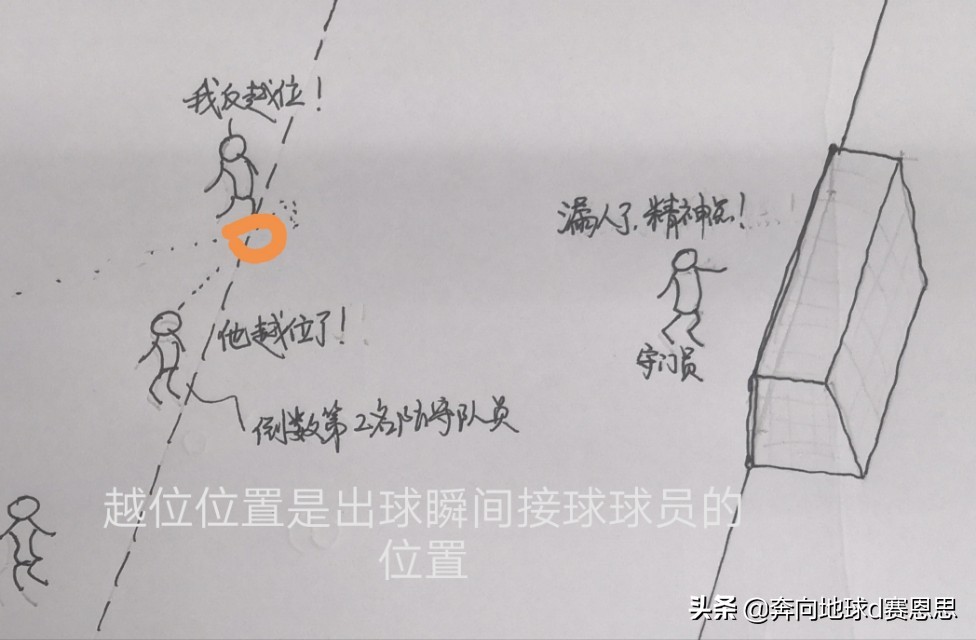 我反越位！
漏人了，精神点！
他越位了！
守门员
倒数第2名防守队员
越位位置是出球瞬间接球球员的
位置
头条 @奔向地球d赛恩思